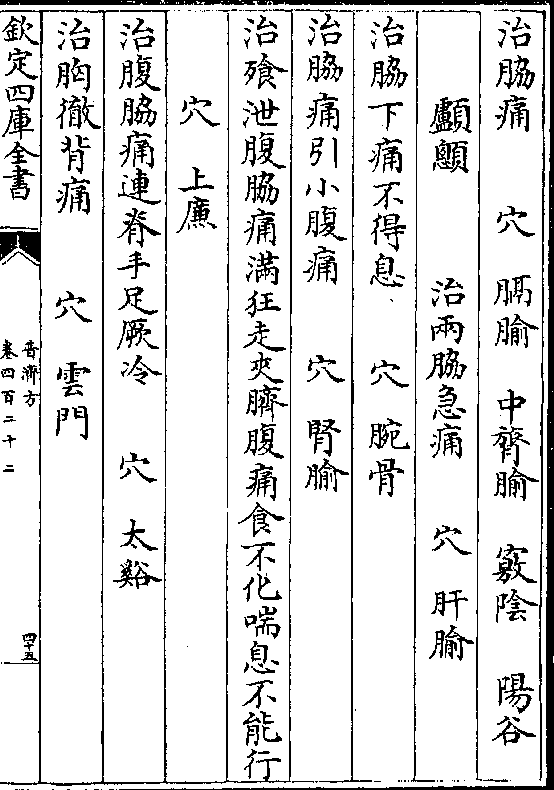 治脇痛　穴　膈腧　中膂腧　竅陰　陽谷
顱顖　治兩脇急痛　穴　肝腧
治脇下痛不得息　穴　腕骨
治脇痛引小腹痛　穴　腎腧
治飱泄腹脇痛滿狂走夾臍腹痛食不化喘息不能行
穴　上廉
治腹脇痛連脊手足厥冷　穴　太谿
治胸徹背痛　穴　雲門
欽定四庫全書
普濟方
卷四百二十二
四十五